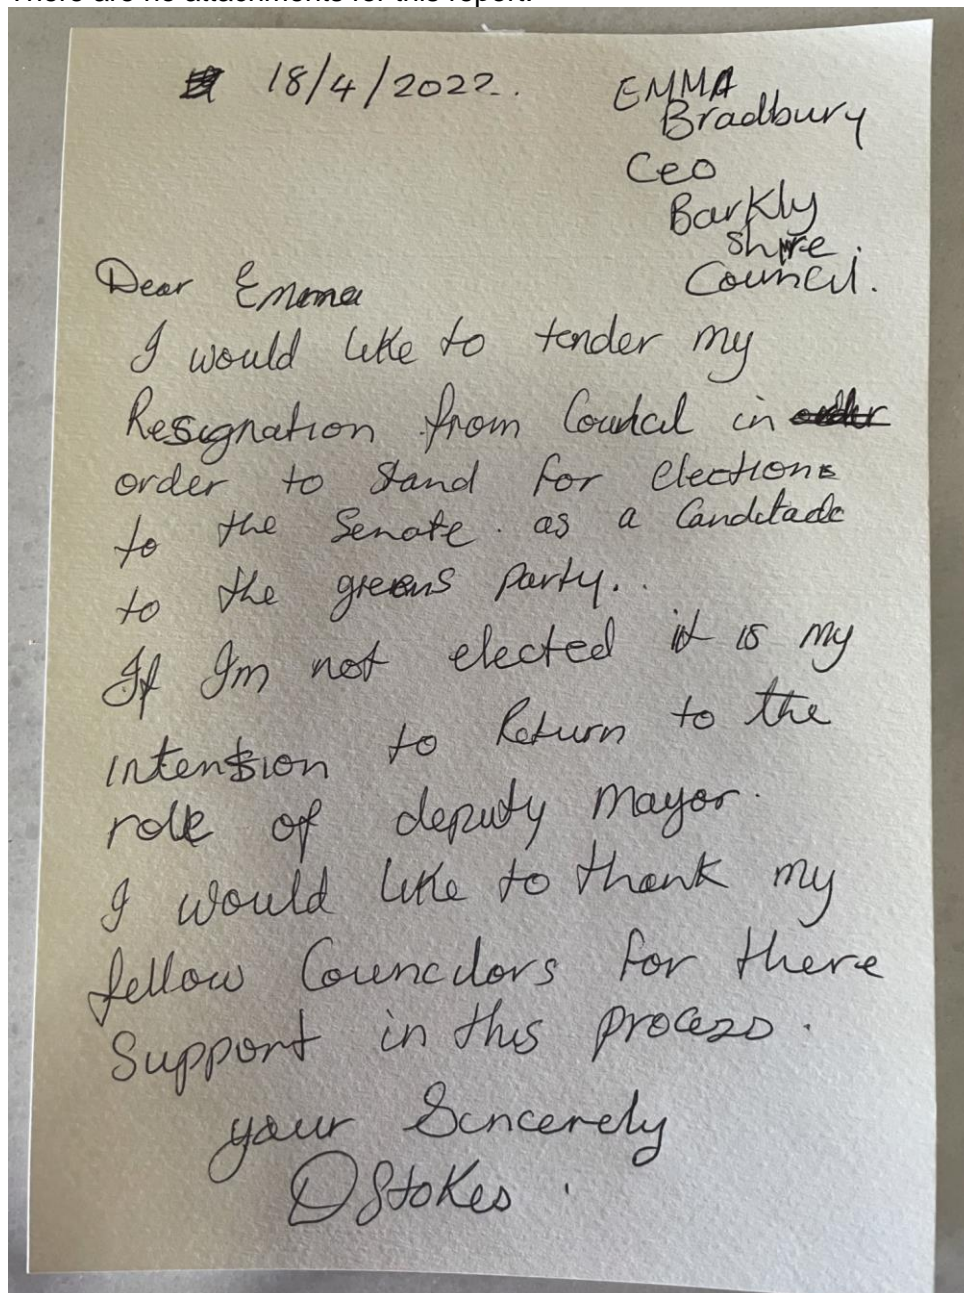 There are no attachments for this report.
18/4/2022.
EMMA
Bradbury
Ceo
Barkly
Shire
Council.
Dear Emma
I would like to tender my
Resignation from Council in order
order to Stand for elections
to the Senate. as a Canditade
to the greens Party..
If Im not elected it is my
intenstion to Return to the
role of deputy Mayor.
I would like to thank my
fellow Councilors for there
Support in this process.
your Sincerely
DStokes.